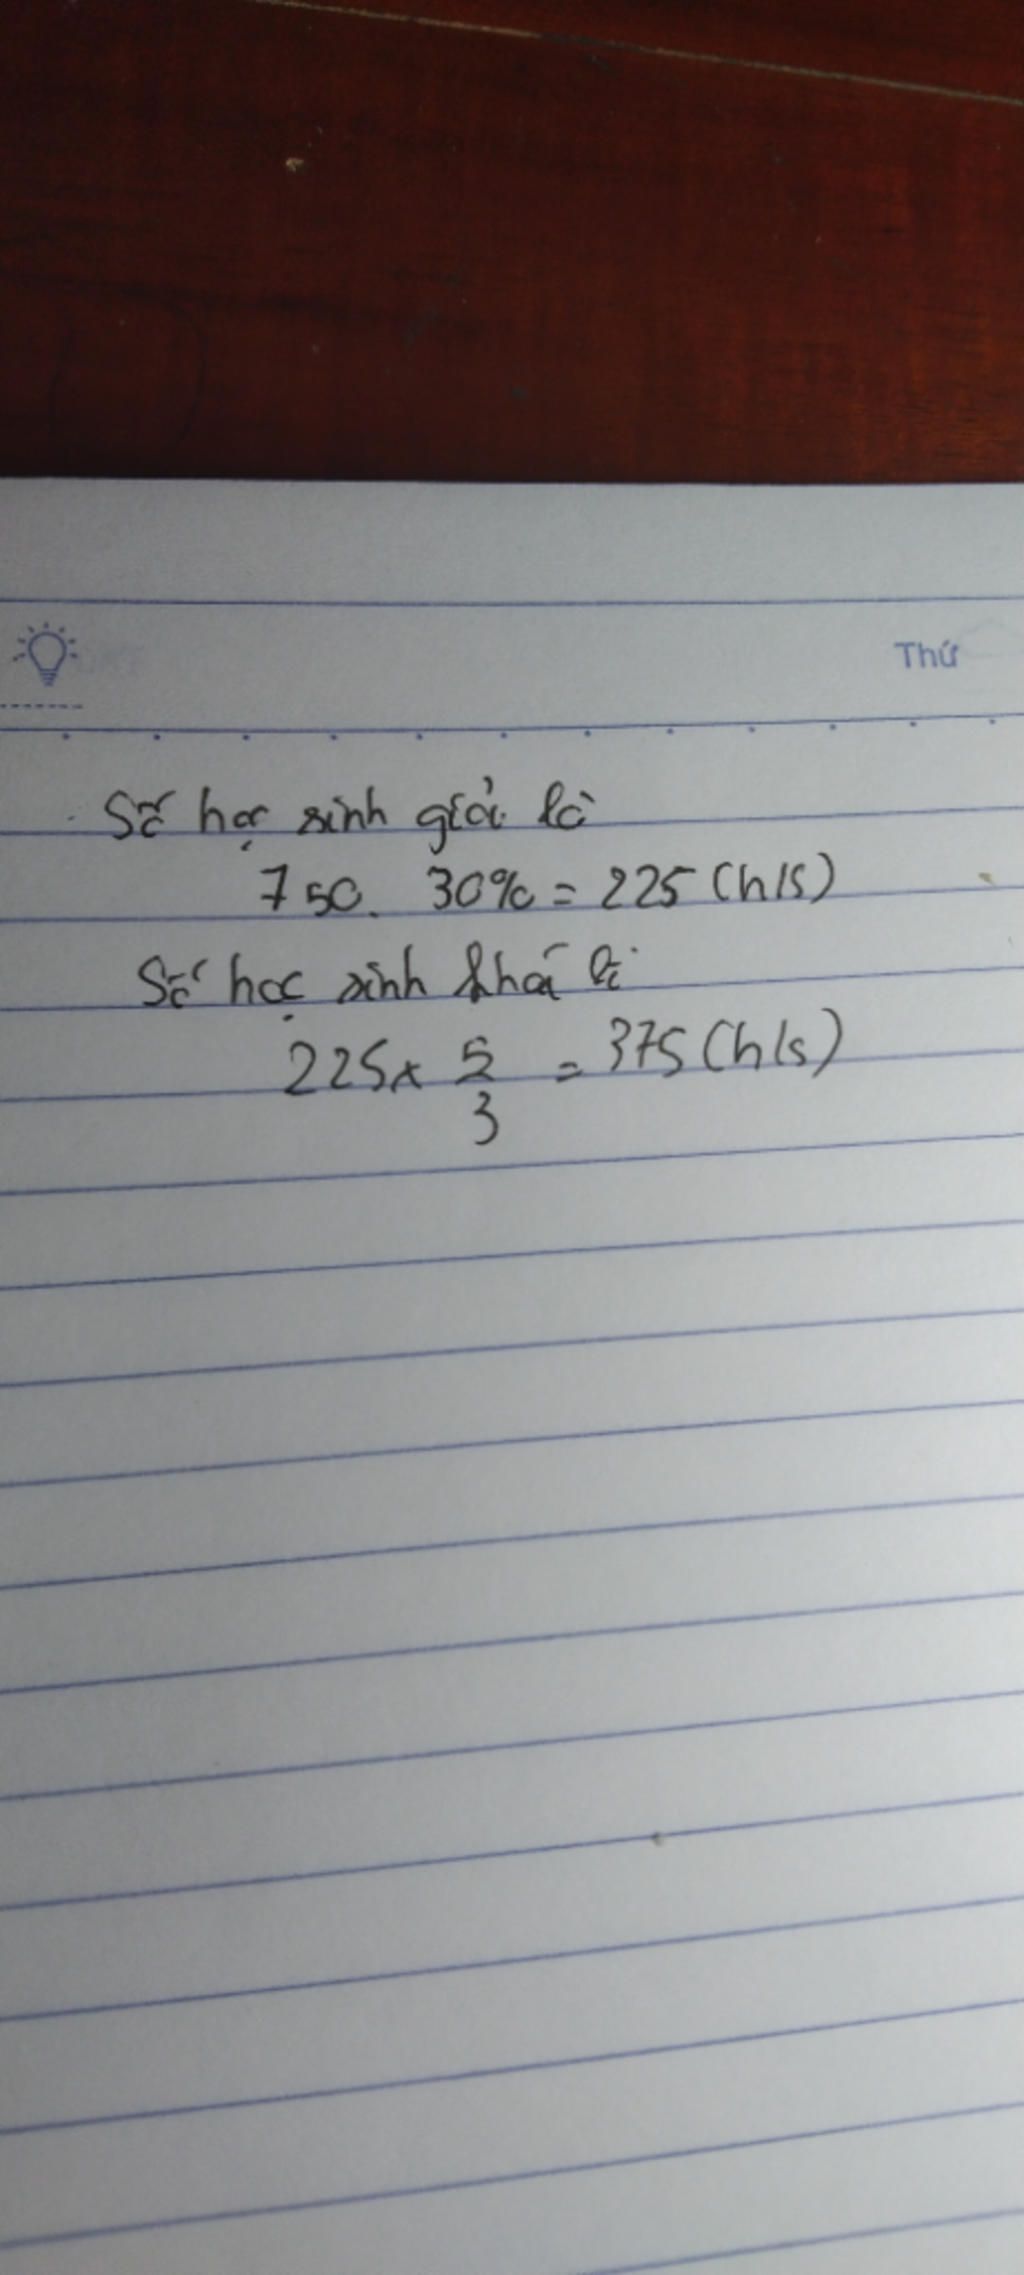 Thứ
Số học sinh giỏi là
750. 30% = 225 (h/s)
Số học sinh khá là
225 x 5/3 = 375 (h/s)